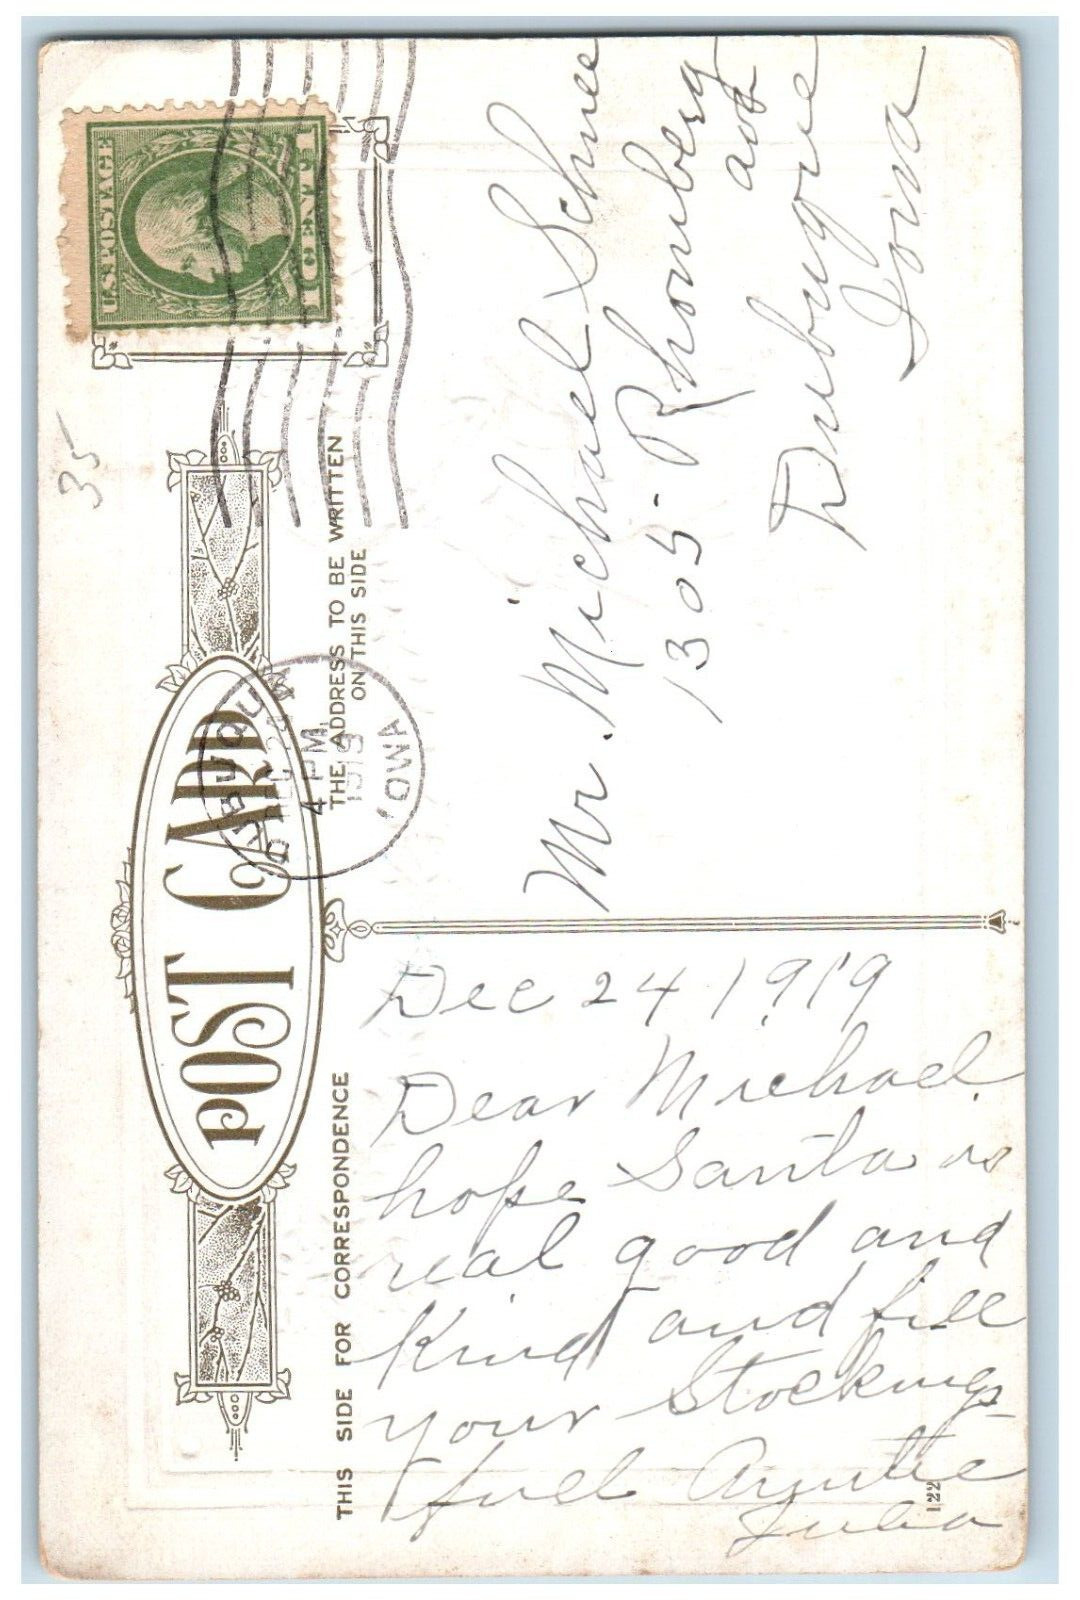 POST CARD
THE ADDRESS TO BE WRITTEN
ON THIS SIDE
THIS SIDE FOR CORRESPONDENCE
U.S. POSTAGE
1 CENT 1
DUBUQUE
DEC 24
4 PM
1919
IOWA
35
Mr. Michael Schnee
1305 - Rhomberg
ave
Dubuque
Iowa
Dec 24 1919
Dear Michael
hope Santa is
real good and
kind and fill
your Stockings
full Auntie
Julia
122